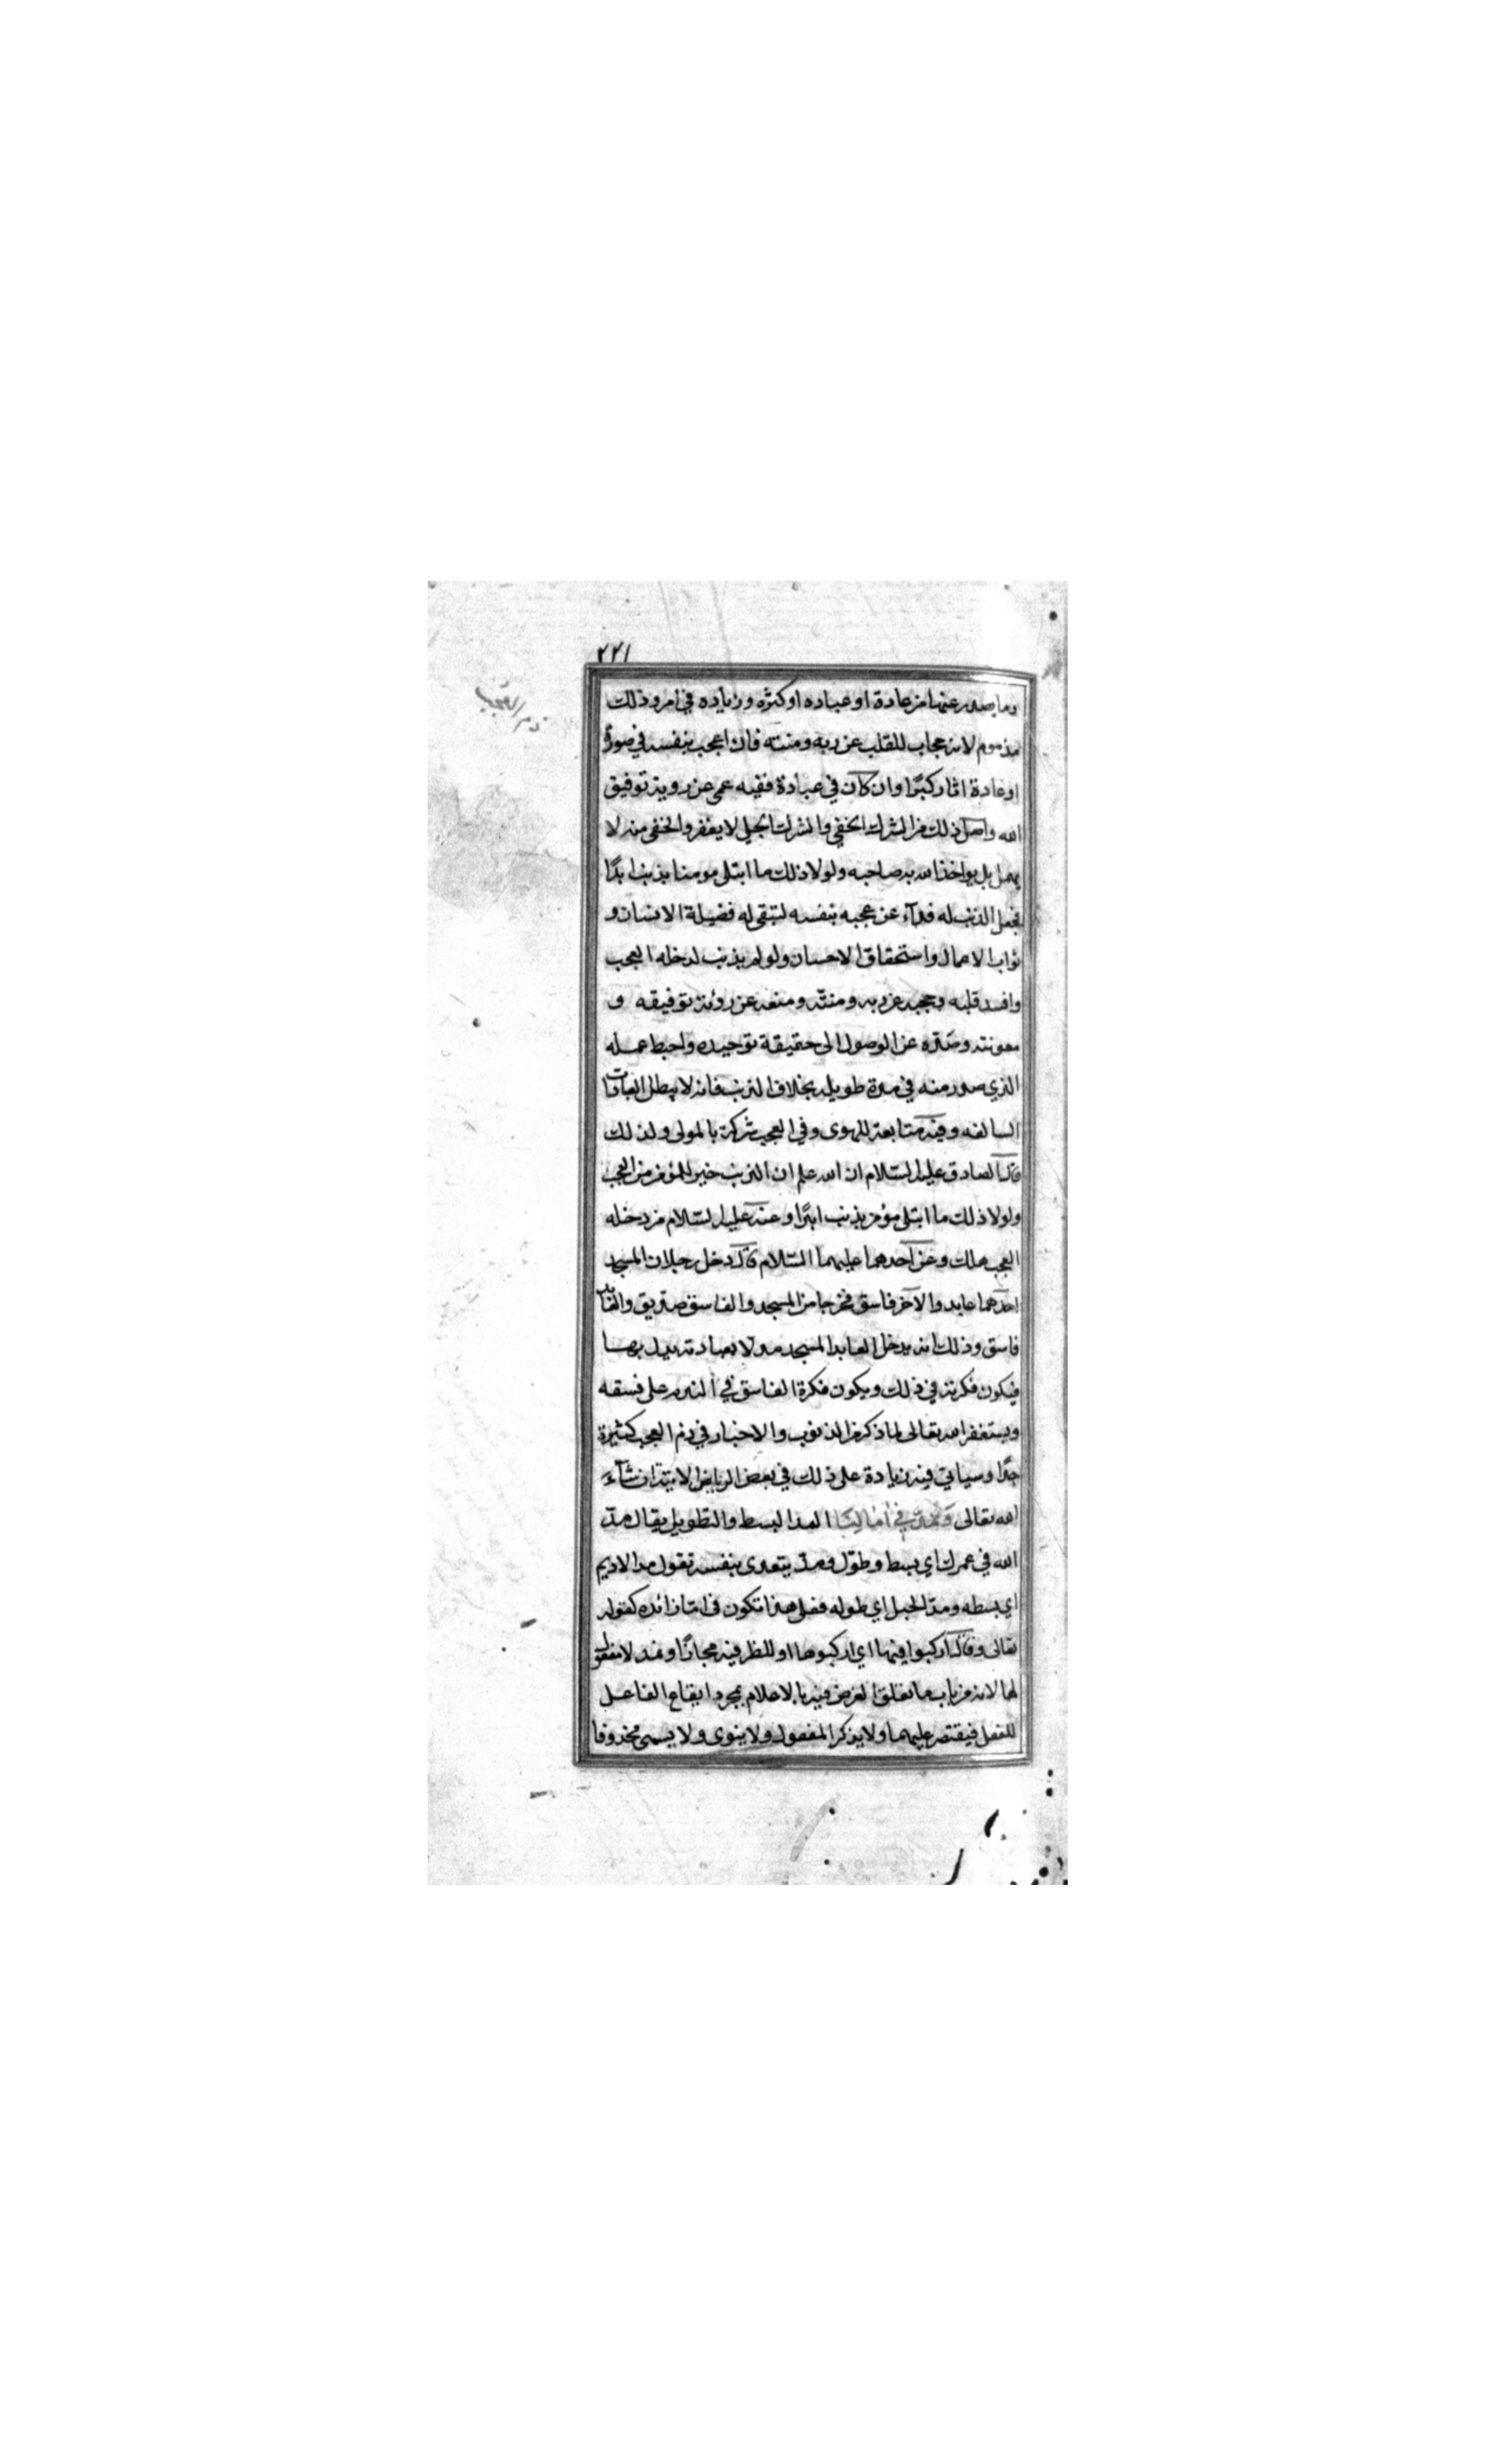 ٢٢١
ذم العجب
وما يصدر عنها من عادة او عباده او كثرة وزياده في امر وذلك
مذموم لانه حجاب للقلب عن ربه ومنته فان اعجب بنفسه في صورة
او عادة اثار كبرًا وان كان في عبادة ففيه عمى عن روية توفيق
الله واصل ذلك من الشرك الخفي والشرك الجلي لا يغفر والخفي منه لا
يهمل بل يواخذ الله به صاحبه ولولا ذلك ما ابتلى مومنا بذنب ابدًا
فجعل الذنب له فدآء عن عجبه بنفسه لتبقى له فضيلة الانسان و
ثواب الاعمال واستحقاق الاحسان ولو لم يذنب لدخله العجب
وافسد قلبه وحجبه عن ربه ومنته ومنعه عن روئة توفيقه و
معونته وصدّه عن الوصول الى حقيقة توحيده واحبط عمله
الذي صدر منه في مدة طويله بخلاف الذنب فانه لا يبطل العبادات
السالفه وفيه متابعة للهوى وفي العجب شركة بالمولى ولذلك
قال الصادق عليه السلام ان الله علم ان الذنب خير للمؤمن من العجب
ولولا ذلك ما ابتلى مؤمن بذنب ابدًا وعنه عليه السلام من دخله
العجب هلك وعن احدهما عليهما السلام قال دخل رجلان المسجد
احدهما عابد والآخر فاسق فخرجا من المسجد والفاسق صديق والعابد
فاسق وذلك انه يدخل العابد المسجد مدلا بعبادته يدل بها
فيكون فكرته في ذلك ويكون فكرة الفاسق في الندم على فسقه
ويستغفر الله تعالى لما ذكر من الذنوب والاخبار في ذم العجب كثيرة
جدًا وسياتي فيه زيادة على ذلك في بعض الرياض الاتية ان شآء
الله تعالى وَنَمُدّ في آمَالِنَا المد البسط والتطويل يقال مدّ
الله في عمرك اي بسط وطوّل ومدّ يتعدى بنفسه تقول مد الاديم
اي بسطه ومدّ الحبل اي طوله فعلى هذا تكون في امّا زائده كقوله
تعالى وقال اركبوا فيها اي اركبوها او للظرفيه مجازًا ونمد لا مفعول
لها لانه من باب ما تعلق الغرض فيه بالاعلام بمجرد ايقاع الفاعل
للفعل فيقتصر عليهما ولا يذكر المفعول ولا ينوى ولا يسمى محذوفا